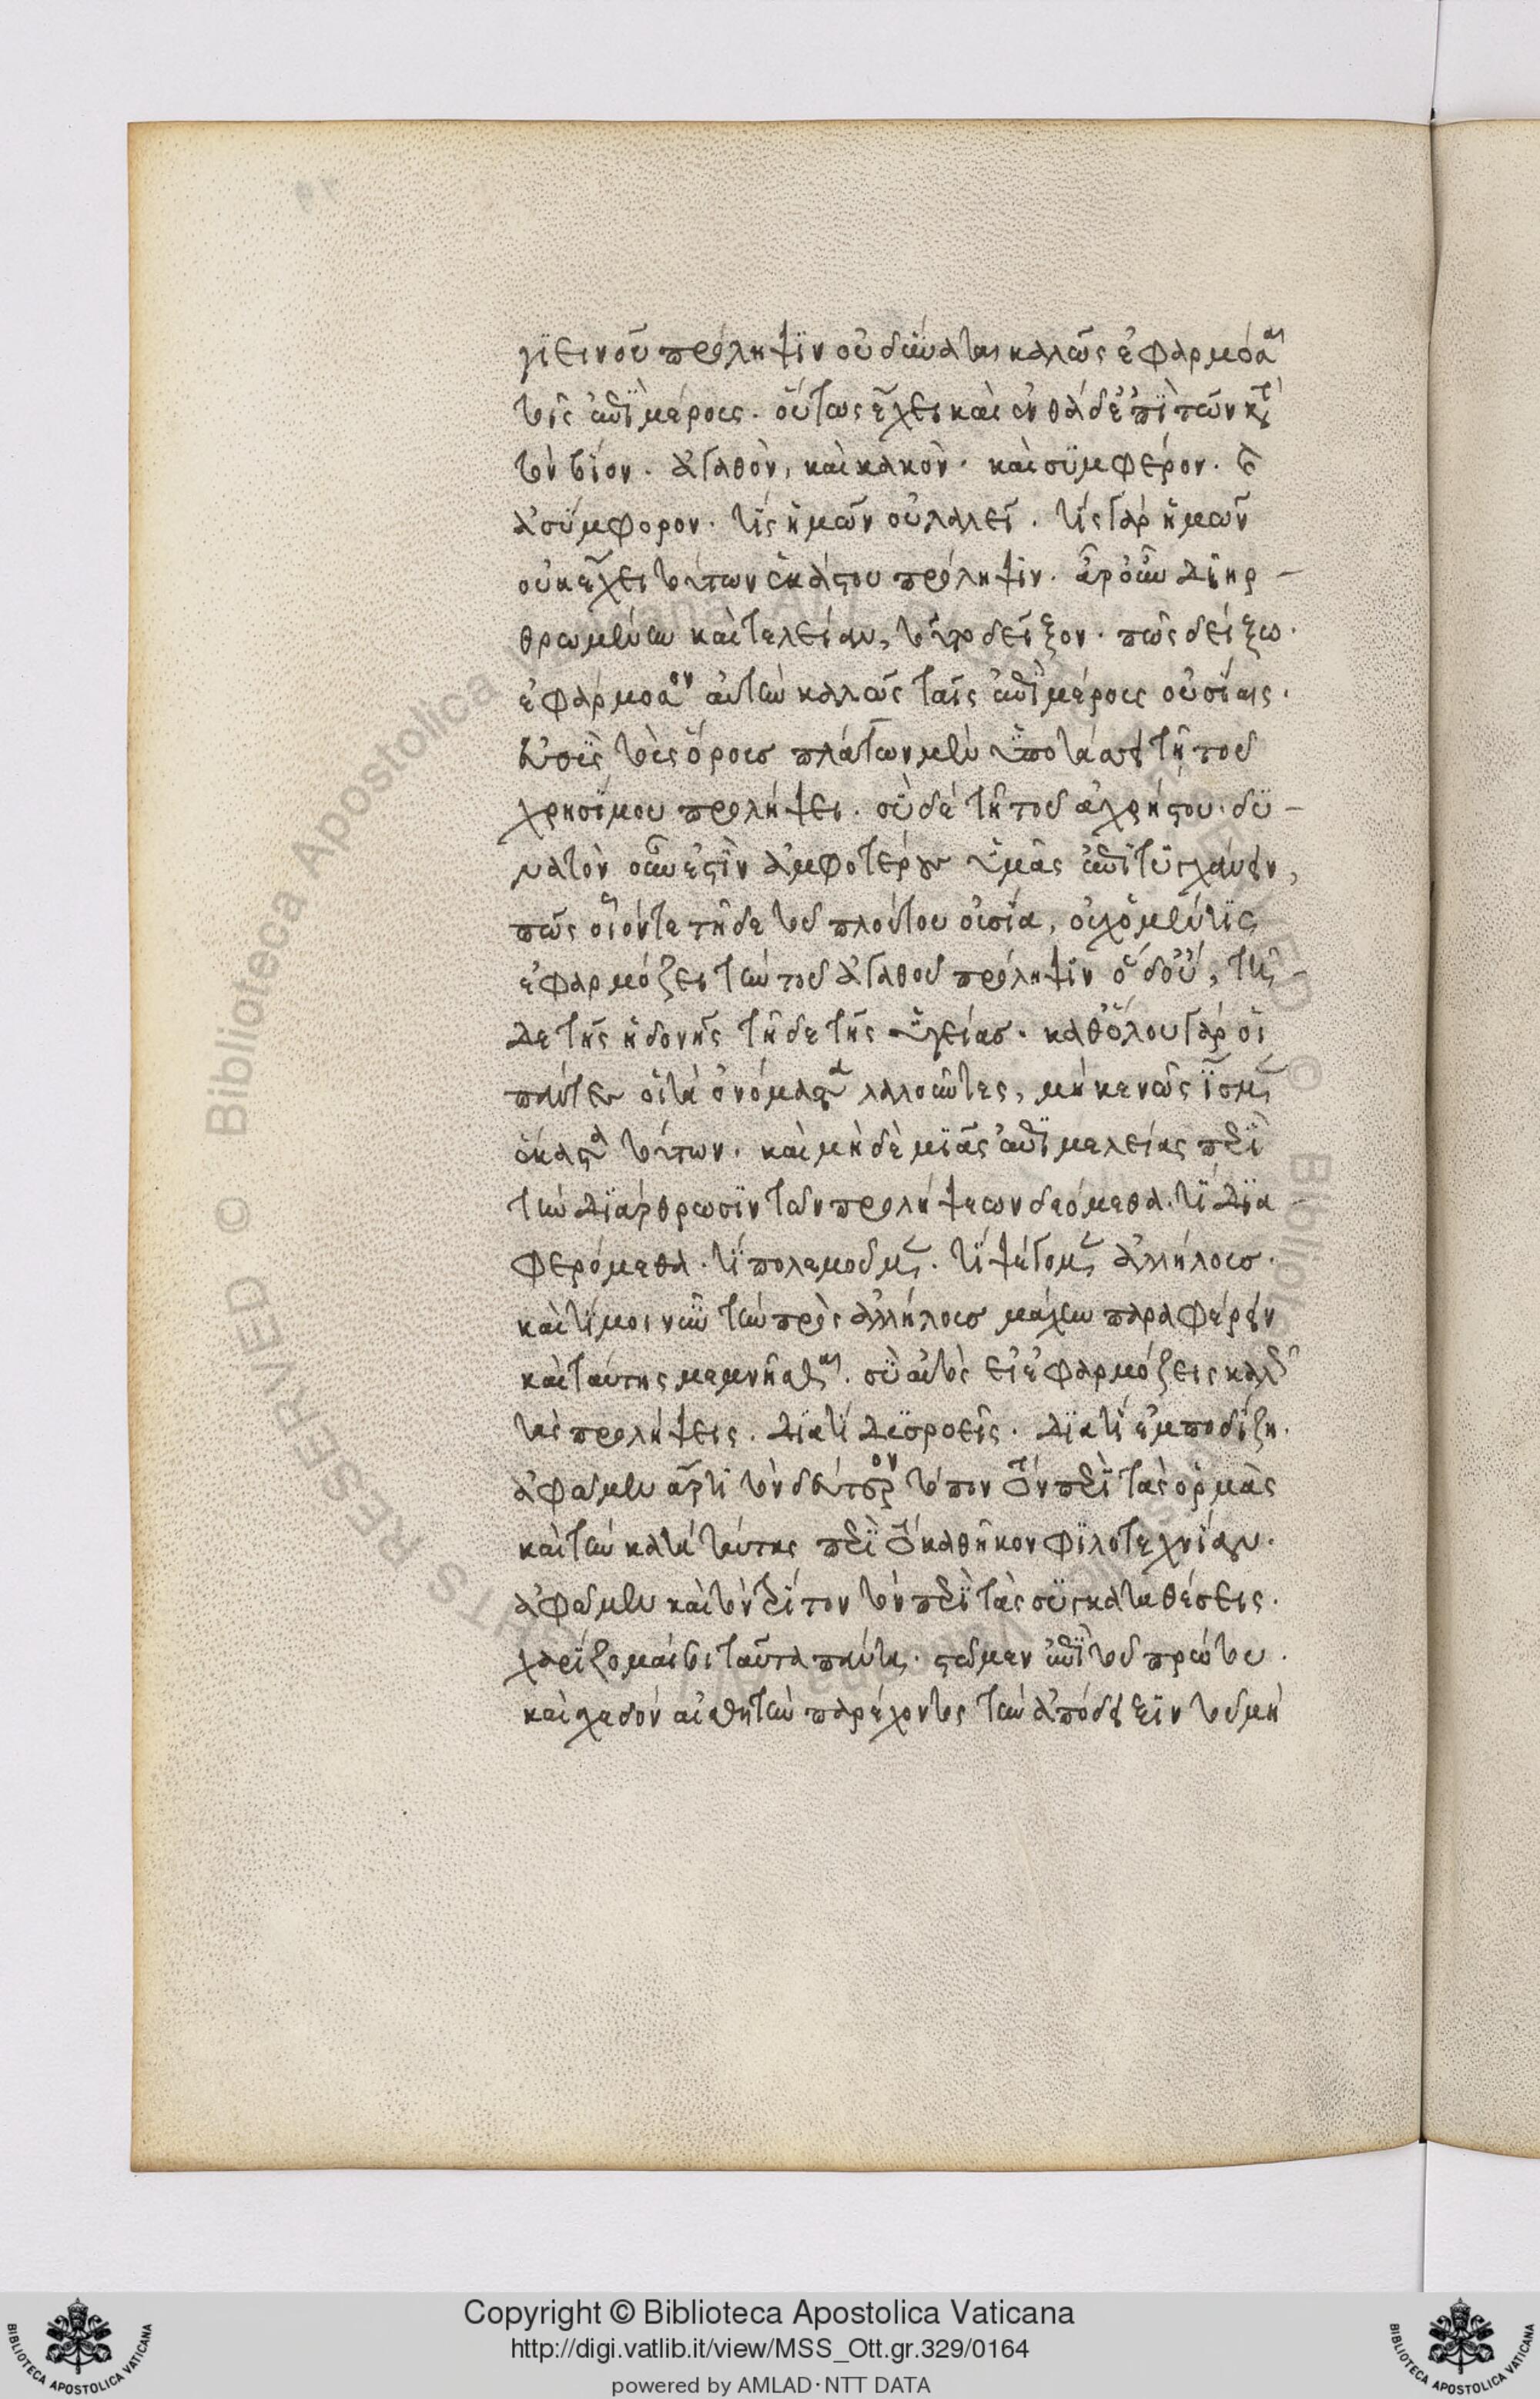 γιεινοῦ πρόληψιν οὐ δύναται καλῶς ἐφαρμόσαι
τοῖς ἐπὶ μέρους. οὕτως ἔχει καὶ ἐνθάδ' ἐπὶ τῶν κατὰ
τὸν βίον. ἀγαθὸν, καὶ κακὸν. καὶ συμφέρον. καὶ
ἀσύμφορον. τίς ἡμῶν οὐ λαλεῖ. τίς γὰρ ἡμῶν
οὐκ ἔχει τούτων ἑκάστου πρόληψιν. ἆρ' οὖν διηρ-
θρωμένην καὶ τελείαν, τοῦτο δεῖξον. πῶς δείξω.
ἐφάρμοσον αὐτὴν καλῶς ταῖς ἐπὶ μέρους οὐσίαις.
εὐθὺς τοὺς ὅρους πλάτων μὲν ὑποτάσσει τῇ τοῦ
χρησίμου προλήψει. σὺ δὲ τῇ τοῦ ἀχρήστου. δυ-
νατὸν οὖν ἐστὶν ἀμφοτέρους ὑμᾶς ἐπιτυγχάνειν,
πῶς οἷόν τε τῇ δὲ τοῦ πλούτου οὐσίᾳ, οὐχ ὁ μέν τις
ἐφαρμόζει τὴν τοῦ ἀγαθοῦ πρόληψιν ὁ δ' οὔ, τῇ-
δε τῆς ἡδονῆς τῇ δὲ τῆς ὑγείας. καθόλου γὰρ εἰ
πάντες οἱ τὰ ὀνόματα λαλοῦντες, μὴ κενῶς ἴσμεν
ἕκαστα τούτων. καὶ μηδὲ μιᾶς ἐπιμελείας περὶ
τὴν διάρθρωσιν τῶν προλήψεων δεόμεθα. τί δια-
φερόμεθα. τί πολεμοῦμεν. τί ψέγομεν ἀλλήλους.
καὶ τί μοι νῦν τὴν πρὸς ἀλλήλους μάχην παραφέρειν
καὶ ταύτης μεμνῆσθαι. σὺ αὐτὸς εἰ ἐφαρμόζεις καλῶς
τὰς προλήψεις. διὰ τί δυσροεῖς. διὰ τί ἐμποδίζῃ.
ἀφῶμεν ἄρτι τὸν δεύτερον τόπον τὸν περὶ τὰς ὁρμὰς
καὶ τὴν κατὰ ταύτας περὶ τὸ καθῆκον φιλοτεχνίαν.
ἀφῶμεν καὶ τὸν τρίτον τὸν περὶ τὰς συγκαταθέσεις.
χαρίζομαί σοι ταῦτα πάντα. στῶμεν ἐπὶ τοῦ πρώτου.
καὶ σχεδὸν αἰσθητὴν παρέχοντος τὴν ἀπόδειξιν τοῦ μὴ
Copyright © Biblioteca Apostolica Vaticana
http://digi.vatlib.it/view/MSS_Ott.gr.329/0164
powered by AMLAD·NTT DATA